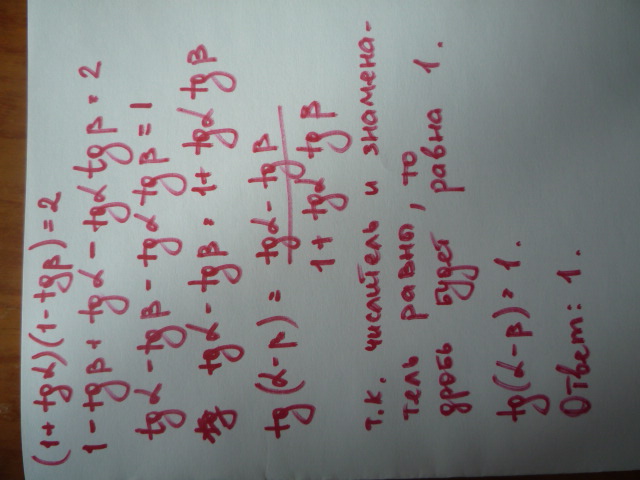 (1 + tgα)(1 - tgβ) = 2
1 - tgβ + tgα - tgα tgβ = 2
tgα - tgβ - tgα tgβ = 1
tgα - tgβ = 1 + tgα tgβ
tg(α-β) = (tgα - tgβ)/(1 + tgα tgβ)
т.к. числитель и знамена-
тель равны, то
дробь будет равна 1.
tg(α-β) = 1.
Ответ: 1.